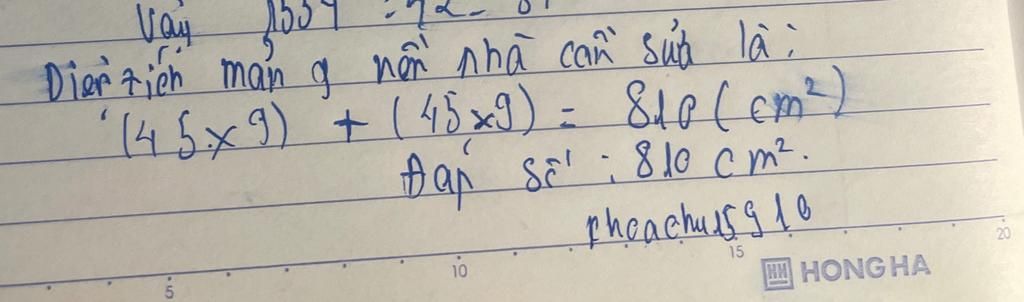 Vậy
Diện tích mản g nền nhà cần sửa là:
(45 x 9) + (45 x 9) = 810 (cm²)
Đáp số : 810 cm².
5 10 15 20
HONG HA